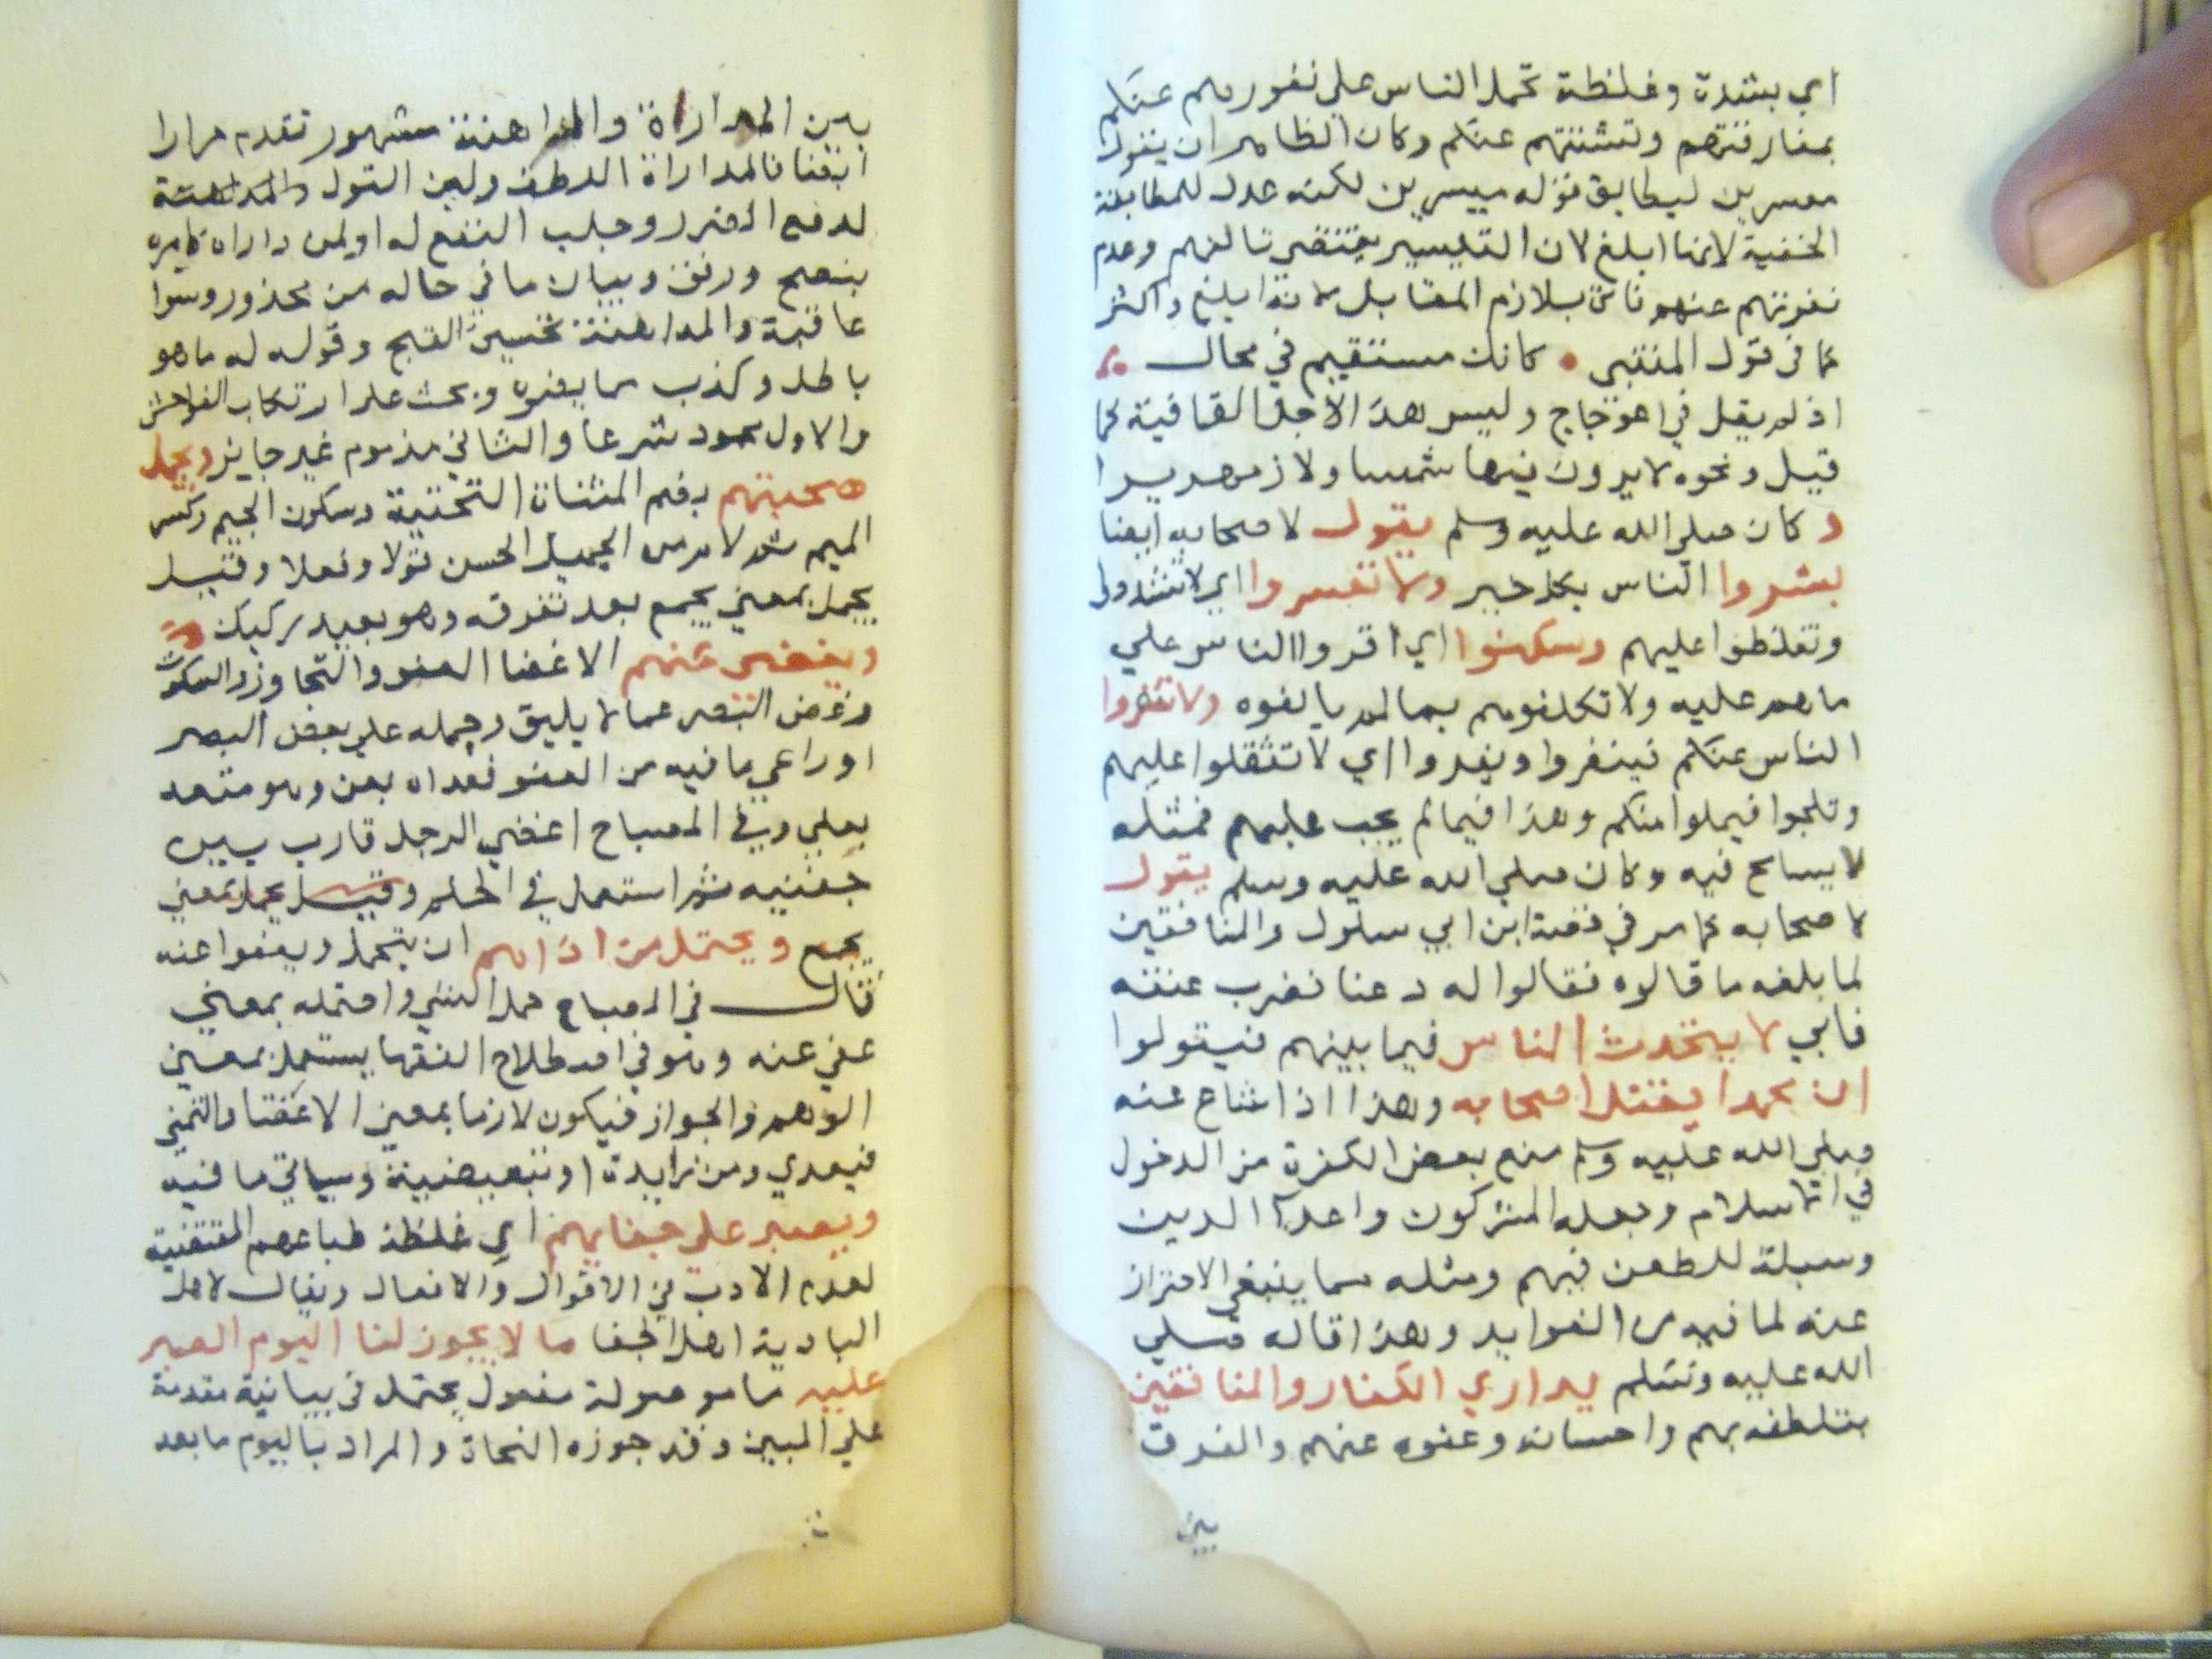 اي بشدة وغلظة تحمل الناس على نفورهم عنكم
بمفارقتهم وتشتتهم عنكم وكان الظاهر ان يقول
معسرين ليطابق قوله ميسرين لكنه عدل للمطابقة
الخفية لانها ابلغ لان التيسير يقتضي تالفهم وعدم
نفرتهم عنهم فاتى بلازم المقابل لانه ابلغ واكثر
كما في قول المتنبي كانك مستقيم في محال
اذ لم يقل في اعوجاج وليس هذا لاجل القافية كما
قيل ونحوه لا يرون فيها شمسا ولا زمهريرا
وكان صلى الله عليه وسلم يقول لاصحابه ايضا
بشروا الناس بكل خير ولا تعسروا اي لا تشددوا
وتغلظوا عليهم وسكنوا اي اقروا الناس على
ما هم عليه ولا تكلفوهم بما لم يالفوه ولا تنفروا
الناس عنكم فينفروا ويفروا اي لا تثقلوا عليهم
وتلجوا فيملوا منكم وهذا فيما لم يجب عليهم فمثله
لا يسامح فيه وكان صلي الله عليه وسلم يقول
لاصحابه كما مر في قصة ابن ابي سلول والمنافقين
لما بلغه ما قالوه فقالوا له دعنا نضرب عنقه
فابي لا يتحدث الناس فيما بينهم فيقولوا
ان محمدا يقتل اصحابه وهذا اذا شاع عنه
صلي الله عليه وسلم منع بعض الكفرة من الدخول
في الاسلام وجعله المشركون واعدآ الدين
وسيلة للطعن فيهم ومثله مما ينبغي الاحتراز
عنه لما فيه من الفوايد وهذا قاله صلي
الله عليه وسلم يداري الكفار والمنافقين
بتلطفه بهم واحسانه وعفوه عنهم والفرق
بين
بين المداراة والمداهنة مشهور تقدم مرارا
ايضا فالمداراة اللطف ولين القول والمداهنة
لدفع الضرر وجلب النفع له او لمن داراه كامره
بنصح ورفق وبيان ما في حاله من محذور وسوا
عاقبة والمداهنة تحسين القبح وقوله له ما هو
باطل وكذب مما يضره وبحث على ارتكاب الفواحش
والاول محمود شرعا والثاني مذموم غير جايز ويجمل
صحبتهم بضم المثناة التحتية وسكون الجيم وكسر
الميم ثم لام من الجميل الحسن قولا وفعلا وقيل
يجمل بمعني يجمع بعد تفرقه وهو بعيد ركيك
ويغضي عنهم الاغضا العفو والتجاوز والسكوت
وغض البصر عما لا يليق وحمله على بعض البصر
او راعي ما فيه من العفو فعداه بعن وهو متعد
بعلى وفي المصباح اغضي الرجل قارب بين
جفنيه ثم استعمل في الحلم وقيل يجمل بمعني
يجمع ويحتمل من اذاهم ان يتحمل ويعفوا عنه
قال في المصباح حمل الشي واحتمله بمعني
عفي عنه وهو في اصطلاح الفقها يستعمل بمعني
الوهم والجواز فيكون لازما بمعني الاغضا والتمني
فيعدي ومن زايدة او تبعيضية وسياتي ما فيه
ويصبر علي جفايهم اي غلظة طباعهم المقتضية
لعدم الادب في الاقوال والافعال ويقال لاهل
البادية اهل الجفا ما لا يجوز لنا اليوم الصبر
عليه ما موصولة مفعول يحتمل في بيانية مقدمة
علي المبين وقد جوزه النحاة والمراد باليوم ما بعد